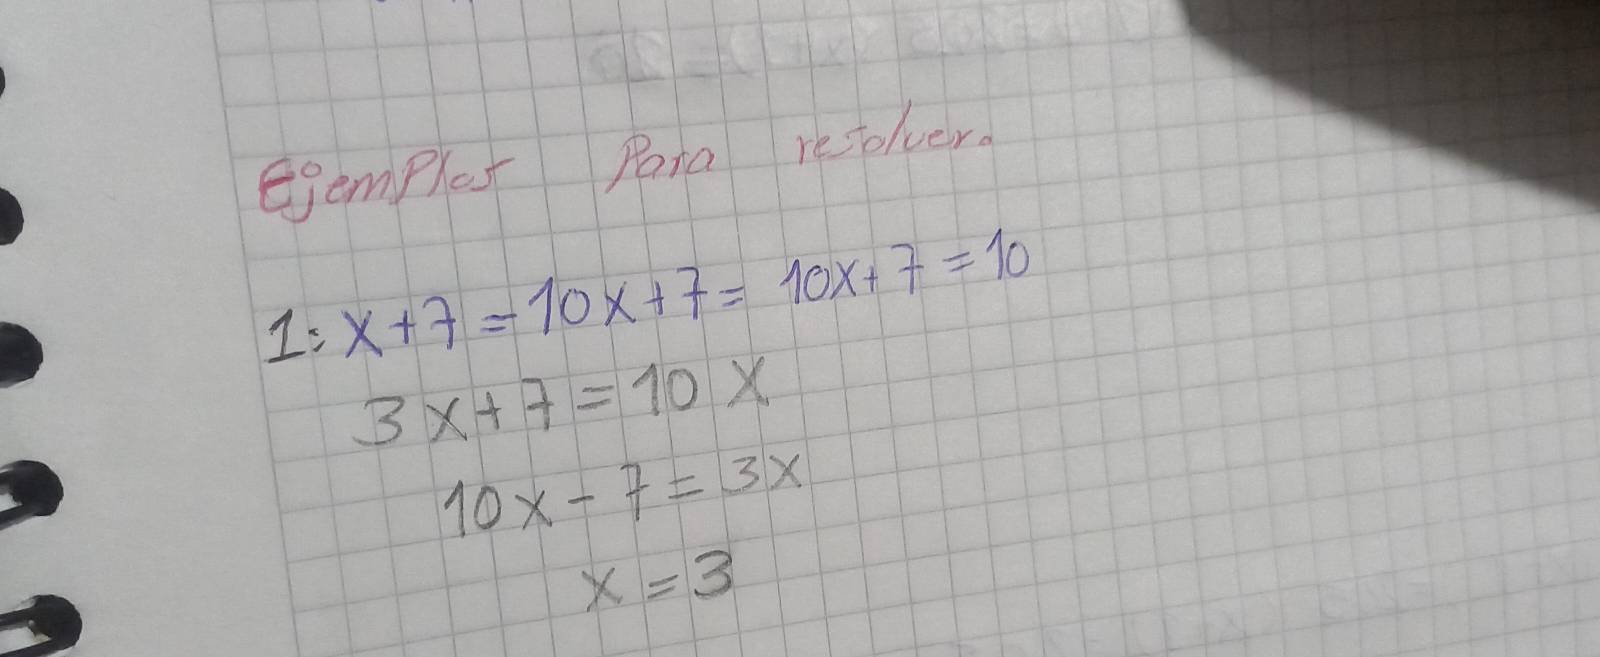 Ejemplos Para resolver.
1: x+7 = 10x+7 = 10x+7 = 10
3x+7 = 10 x
10x - 7 = 3x
x = 3